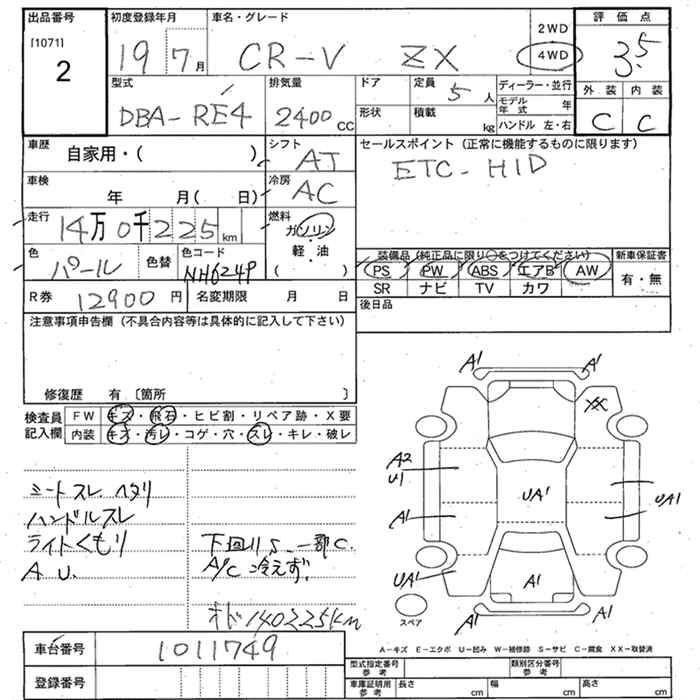 出品番号
[1071]
2
初度登録年月
19 7月
車名・グレード
CR-V ZX
2WD
4WD
評価点
3.5
外装 内装
C C
型式
DBA-RE4
排気量
2400 CC
ドア
形状
定員
5人
積載
kg
ディーラー・並行
モデル年式 年
ハンドル 左・右
車歴
自家用・( )
シフト
AT
セールスポイント (正常に機能するものに限ります)
ETC-HID
車検
年 月( 日)
冷房
AC
走行
14万0千225km
燃料
ガソリン・軽・油
( )
色
パール
色替
色コード
NH624P
装備品 (純正品に限り○をつけてください)
PS PW ABS エアB AW
SR ナビ TV カワ
新車保証書
有・無
R券 12900円
名変期限 月 日
後日品
注意事項申告欄 (不具合内容等は具体的に記入して下さい)
修復歴 有 〔箇所 〕
検査員記入欄
FW キズ・飛石・ヒビ割・リペア跡・X要
内装 キズ・汚レ・コゲ・穴・スレ・キレ・破レ
シートスレ ヘタリ
ハンドルスレ
ライトくもり
A U.
下回りS 一部C.
A/C冷えず.
オド 140225km
A1 A1
XX
A2
U1
UA1
UA1
A1
UA1
A1
A1 A1
スペア
A-キズ E-エクボ U-凹み W-補修跡 S-サビ C-腐食 XX-取替済
車台番号 1011749
登録番号
型式指定番号 参考
類別区分番号 参考
車庫証明用 参考
長さ cm
幅 cm
高さ cm